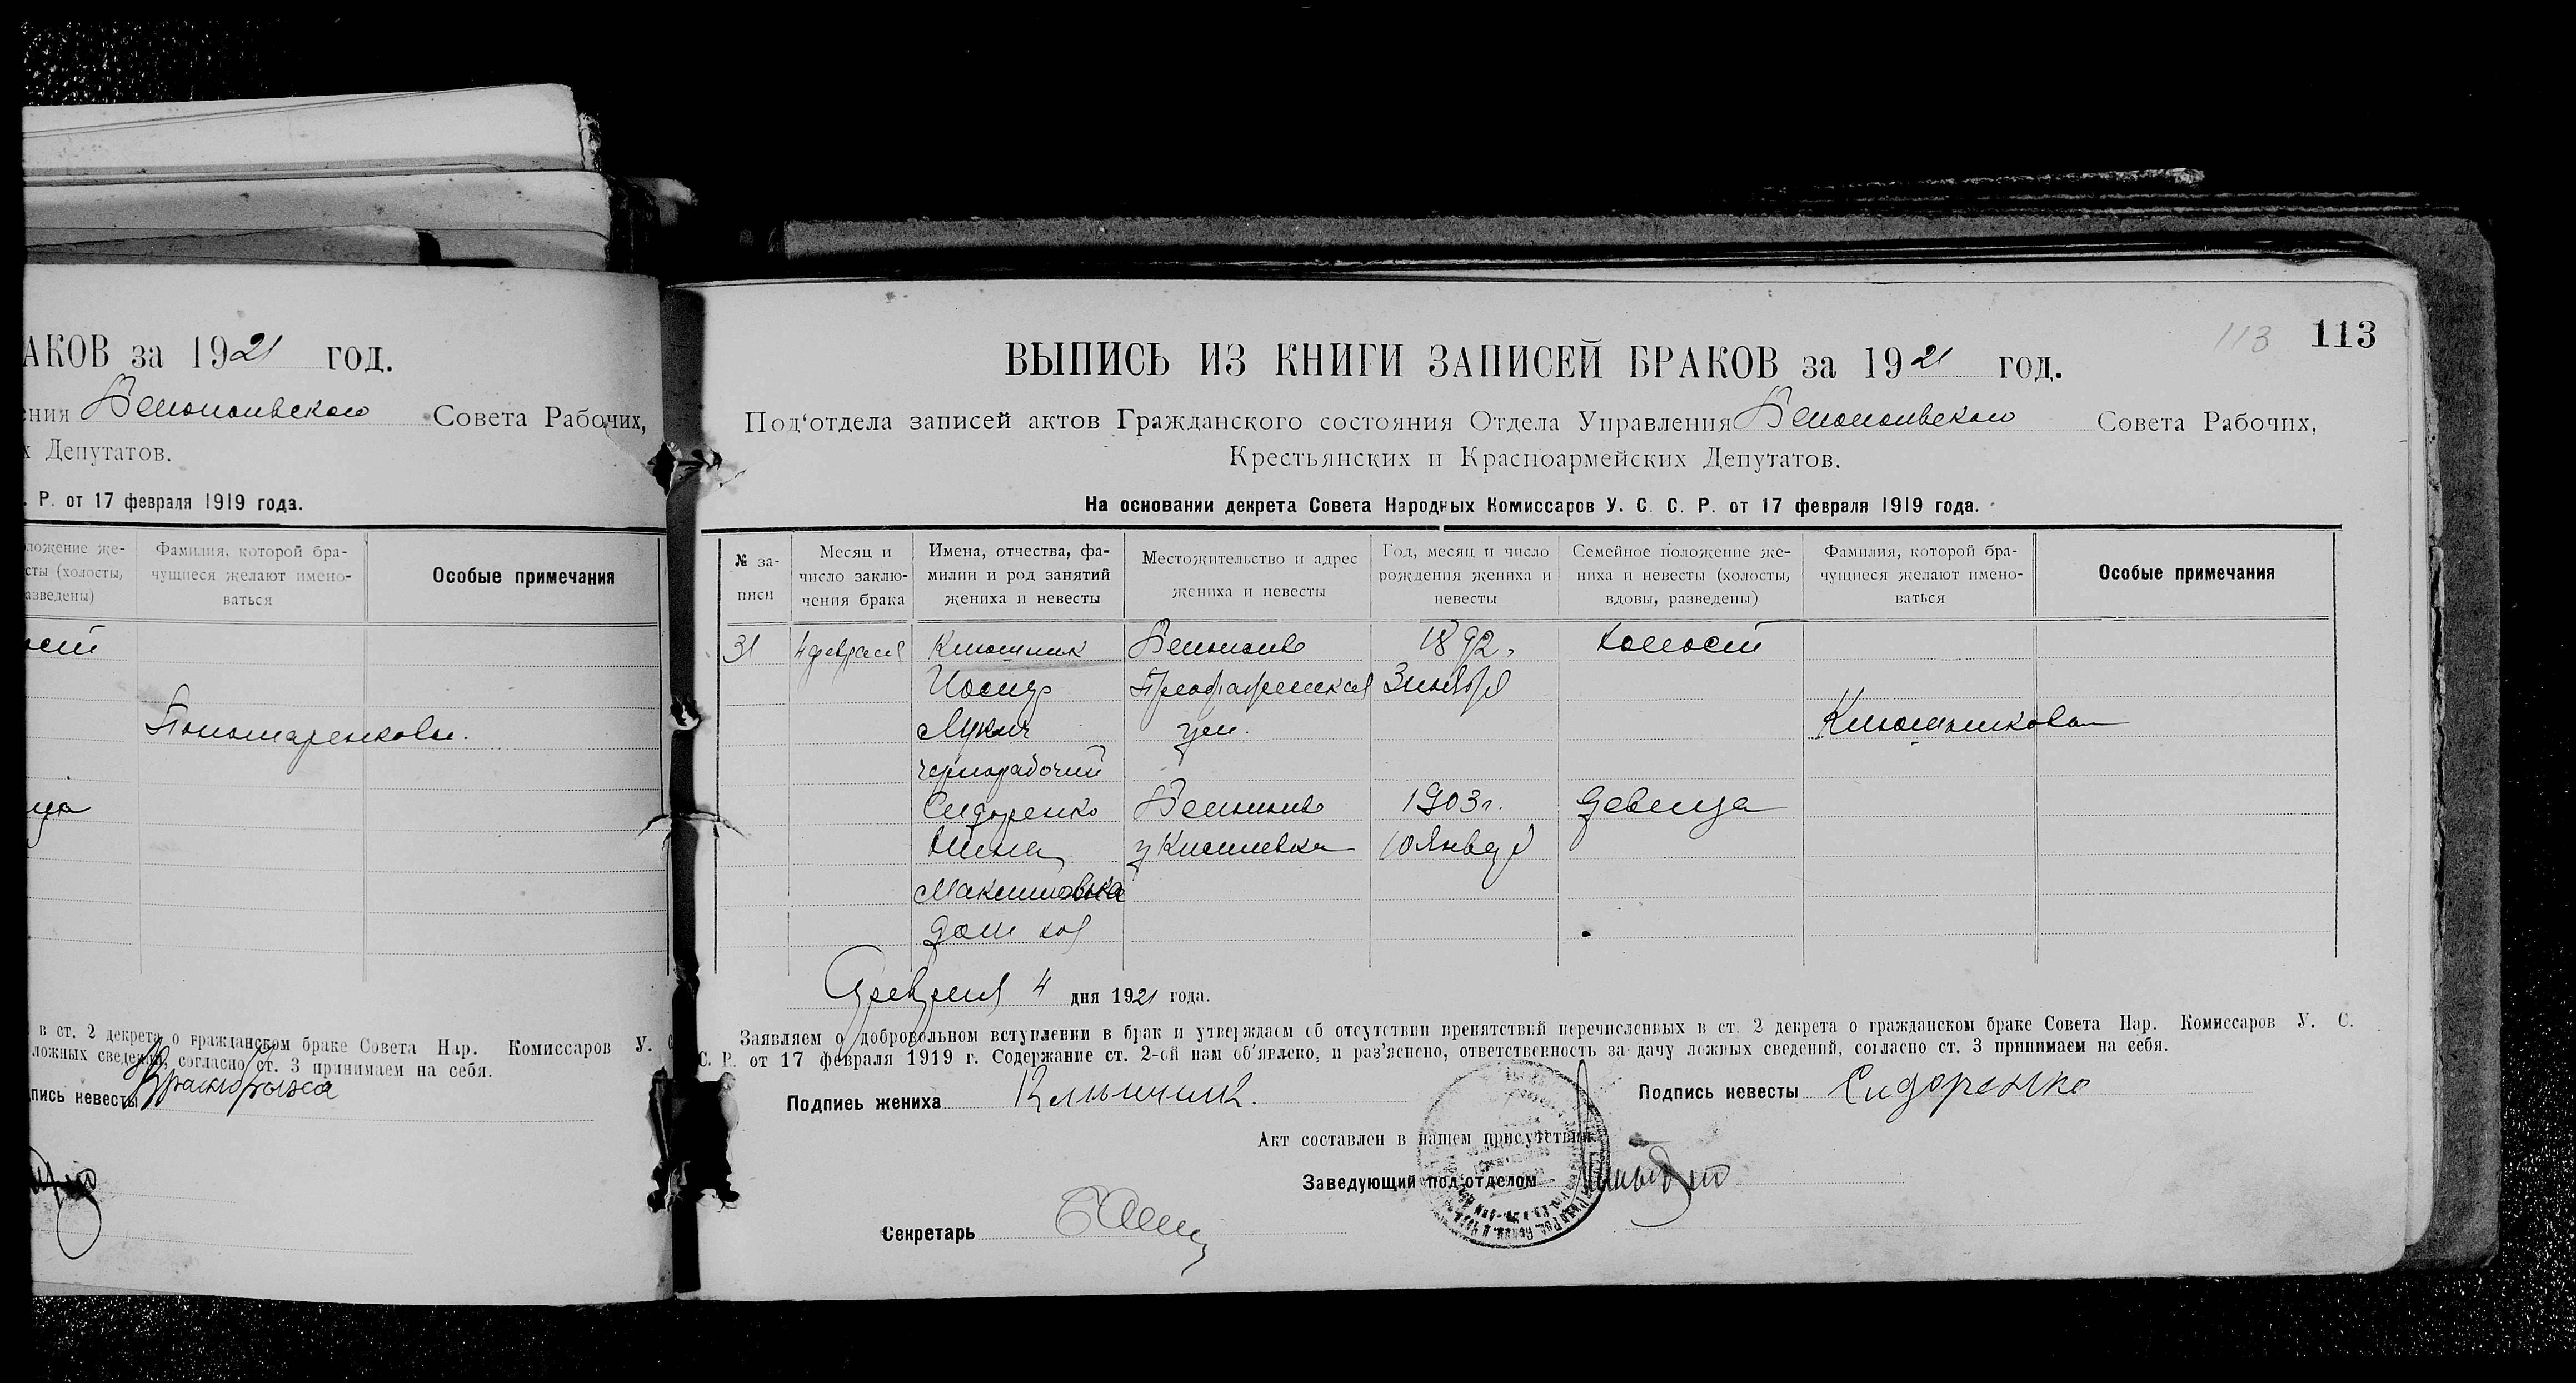 АКОВ за 1921 год.
ения Белопольского Совета Рабочих,
х Депутатов.
. Р. от 17 февраля 1919 года.
ложение же-
сты (холосты,
азведены)
Фамилия, которой бра-
чущиеся желают имено-
ваться
Особые примечания
Пономаренковы.
в ст. 2 декрета о гражданском браке Совета Нар. Комиссаров У.
ложных сведений, согласно ст. 3 принимаем на себя.
пись невесты
113
113
ВЫПИСЬ ИЗ КНИГИ ЗАПИСЕЙ БРАКОВ за 1921 год.
Под'отдела записей актов Гражданского состояния Отдела Управления Белопольского Совета Рабочих,
Крестьянских и Красноармейских Депутатов.
На основании декрета Совета Народных Комиссаров У. С. С. Р. от 17 февраля 1919 года.
№ за-
писи
Месяц и
число заклю-
чения брака
Имена, отчества, фа-
милии и род занятий
жениха и невесты
Местожительство и адрес
жениха и невесты
Год, месяц и число
рождения жениха и
невесты
Семейное положение же-
ниха и невесты (холосты,
вдовы, разведены)
Фамилия, которой бра-
чущиеся желают имено-
ваться
Особые примечания
31 4 февраля Ключник Белополье 1892, холост
Иосиф
Лукич ул.
чернорабочий
Сидоренко Белополье 1903 г. девица
10 Января
Максимовна
дом хоз
Февраля 4 дня 1921 года.
Заявляем о добровольном вступлении в брак и утверждаем об отсутствии препятствий перечисленных в ст. 2 декрета о гражданском браке Совета Нар. Комиссаров У. С.
С. Р. от 17 февраля 1919 г. Содержание ст. 2-ой нам об'явлено, и раз'яснено, ответственность за дачу ложных сведений, согласно ст. 3 принимаем на себя.
Подпись жениха Подпись невесты Сидоренко
Акт составлен в нашем присутствии:
Заведующий под'отделом
Секретарь